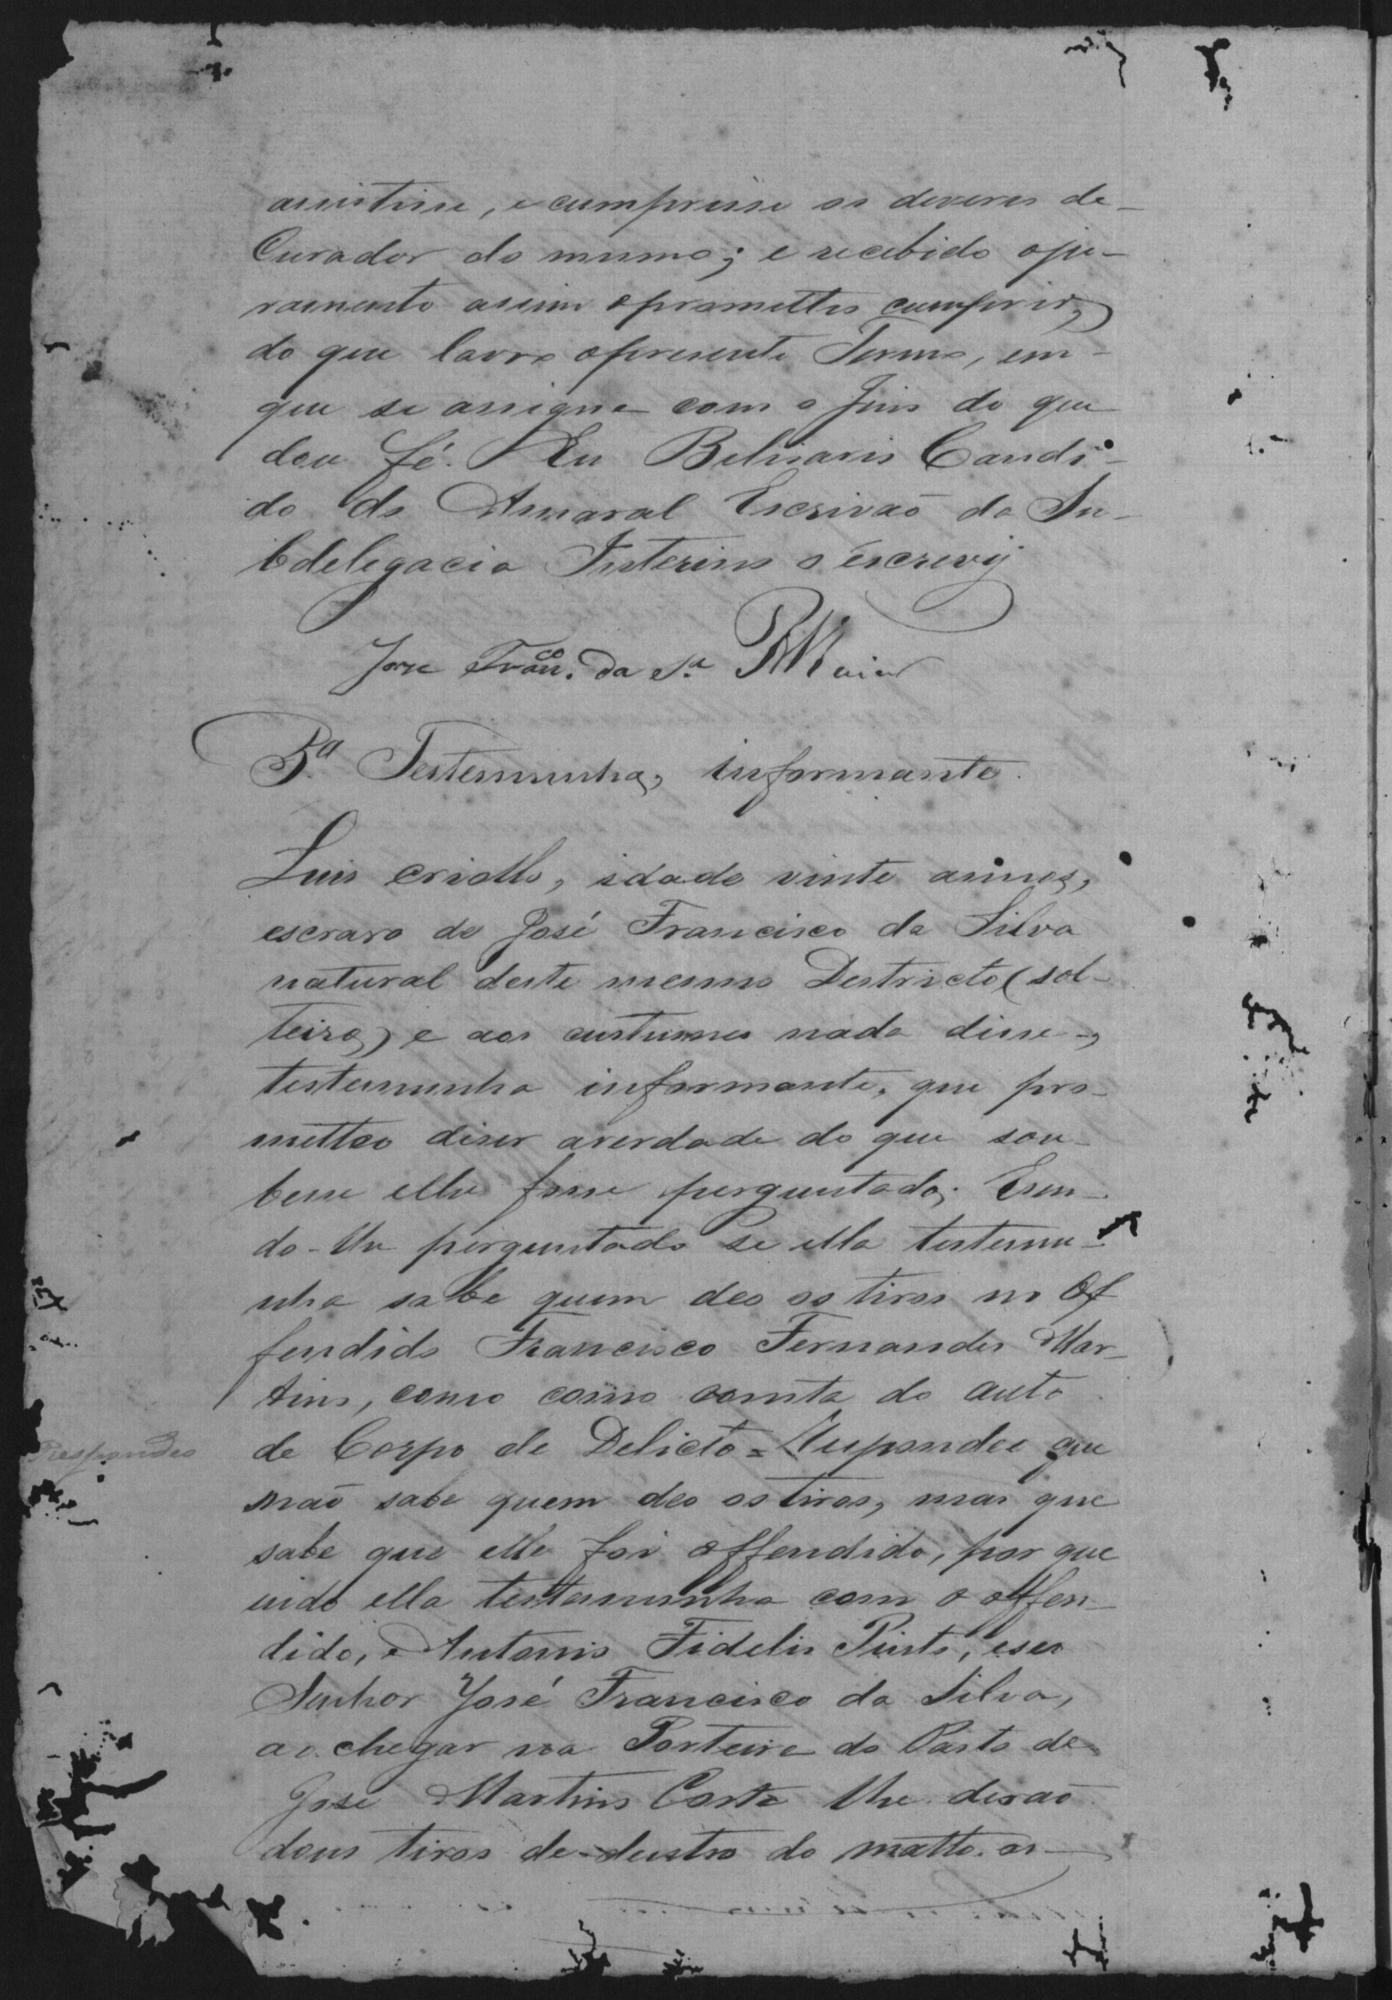 assistisse, e cumprisse os deveres de
Curador do mesmo; e recebido oju-
ramento assim oprometteo cumprir,
do que lavro opresente Termo, em-
que se assigna com o Juis do que
dou fé. Eu Belisario Candi-
do do Amaral Escrivaõ da Su-
bdelegacia Interino o escrevÿ
Jose Franco. da Sa.
3a. Testemunha, informante.
Luis criollo, idade vinte annos,
escravo de José Francisco da Silva
natural deste mesmo Destricto (sol-
teiro,) e aos custumes nada disse,
testemunha informante, que pro-
metteo diser averdade do que sou-
besse elhe fosse perguntado; Esen-
do-lhe perguntado se ella testemu-
nha sabe quem deo os tiros no Of
fendido Francisco Fernandes Mar-
tins, como como consta do auto
de Corpo de Delicto = Respondeo que
Respondeo
naõ sabe quem deo os tiros, mas que
sabe que elle foi offendido, por que
indo ella testemunha com o offen-
dido, e Antonio Fidelis Pinto, eseo
Senhor José Francisco da Silva,
ao chegar na Porteira do Pasto de
José Martins Costa lhe deraõ
dous tiros de dentro do matto. os